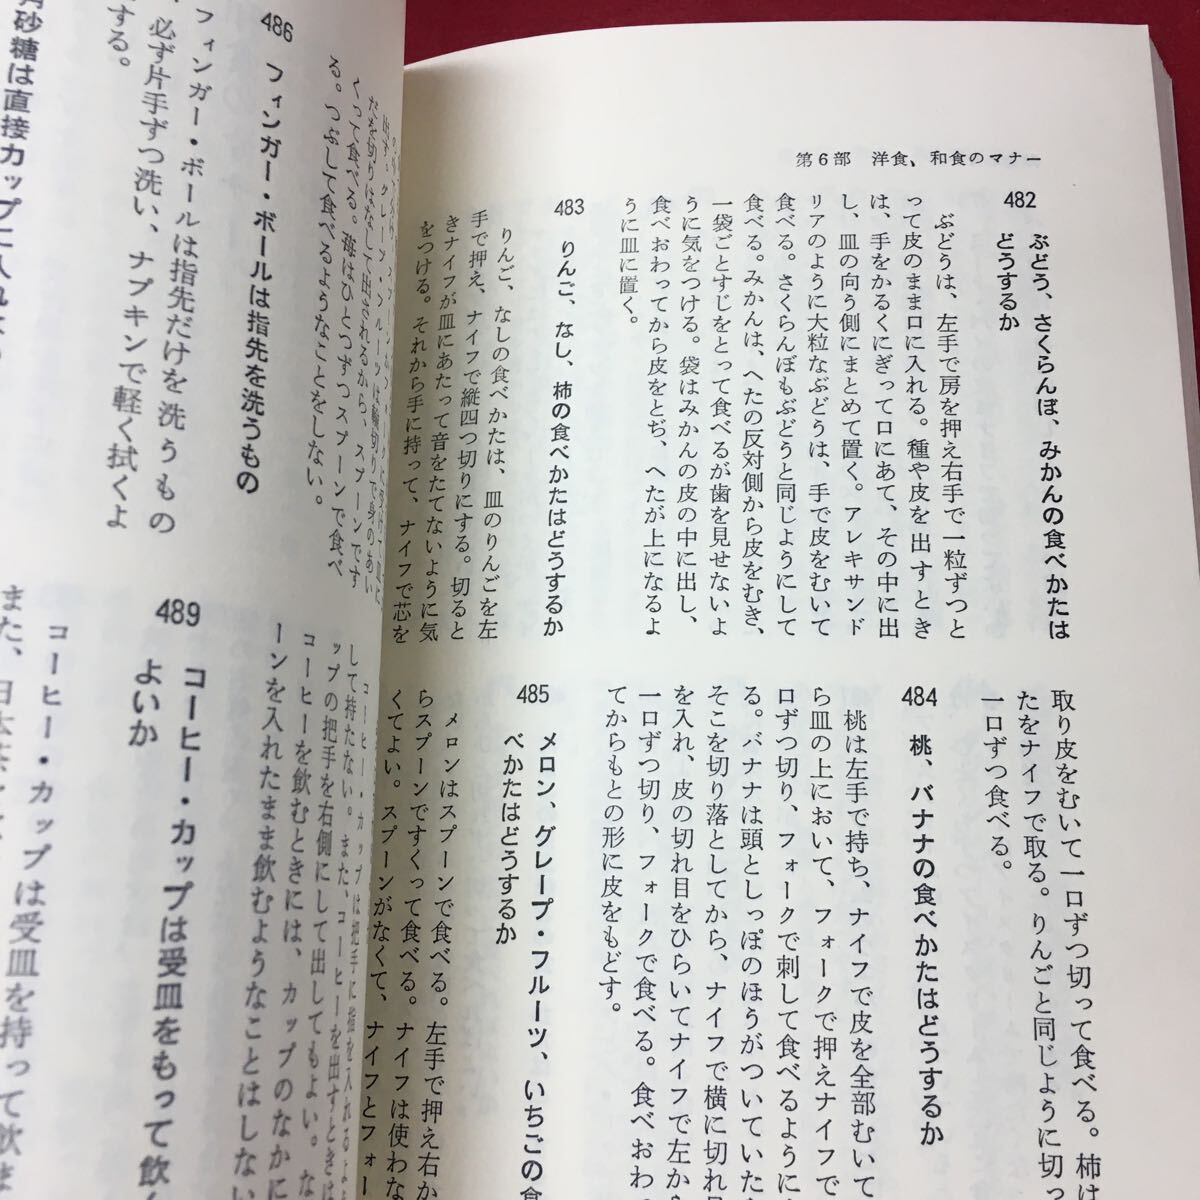 第6部　洋食、和食のマナー
482　ぶどう、さくらんぼ、みかんの食べかたは
どうするか
ぶどうは、左手で房を押え右手で一粒ずつと
って皮のまま口に入れる。種や皮を出すとき
は、手をかるくにぎって口にあて、その中に出
し、皿の向う側にまとめて置く。アレキサンド
リアのように大粒なぶどうは、手で皮をむいて
食べる。さくらんぼもぶどうと同じようにして
食べる。みかんは、へたの反対側から皮をむき、
一袋ごとすじをとって食べるが歯を見せないよ
うに気をつける。袋はみかんの皮の中に出し、
食べおわってから皮をとぢ、へたが上になるよ
うに皿に置く。
483　りんご、なし、柿の食べかたはどうするか
りんご、なしの食べかたは、皿のりんごを左
手で押え、ナイフで縦四つ切りにする。切ると
きナイフが皿にあたって音をたてないように気
をつける。それから手に持って、ナイフで芯を
取り皮をむいて一口ずつ切って食べる。柿は
たをナイフで取る。りんごと同じように切っ
一口ずつ食べる。
484　桃、バナナの食べかたはどうするか
桃は左手で持ち、ナイフで皮を全部むいて
ら皿の上において、フォークで押えナイフで
口ずつ切り、フォークで刺して食べるように
る。バナナは頭としっぽのほうがついていた
そこを切り落としてから、ナイフで横に切れ
を入れ、皮の切れ目をひらいてナイフで左か
一口ずつ切り、フォークで食べる。食べおわ
てからもとの形に皮をもどす。
485　メロン、グレープ・フルーツ、いちごの食
べかたはどうするか
メロンはスプーンで食べる。左手で押え右か
らスプーンですくって食べる。ナイフは使わな
くてよい。スプーンがなくて、ナイフとフォー
だを切りはなして出されるから、スプーンです
くって食べる。苺はひとつずつスプーンで食べ
る。つぶして食べるようなことをしない。
486　フィンガー・ボールは指先を洗うもの
フィンガー・ボールは指先だけを洗うもの
必ず片手ずつ洗い、ナプキンで軽く拭くよ
する。
角砂糖は直接カップに入れ
コーヒー・カップは把手に指を入れるよ
して持たない。また、コーヒーを出すときは
ップの把手を右側にして出してもよい。な
コーヒーを飲むときには、カップのなかに
ーンを入れたまま飲むようなことはしない
489　コーヒー・カップは受皿をもって飲
よいか
コーヒー・カップは受皿を持って飲ま
また、日本茶